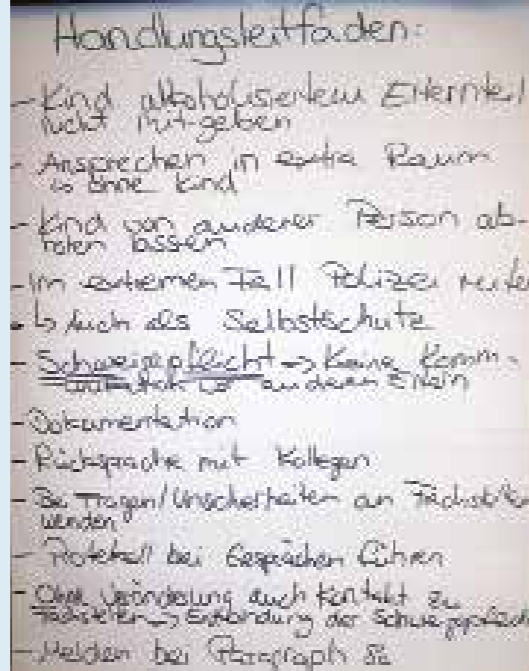 Handlungsleitfaden:
- Kind alkoholisiertem Elternteil
nicht mitgeben
- Ansprechen in extra Raum
ohne Kind
- Kind von anderer Person ab-
holen lassen
- Im extremen Fall Polizei
↳ Auch als Selbstschutz
- Schweigepflicht → Keine Komm-
unikation anderen Eltern
- Dokumentation
- Rücksprache mit Kollegen
- Bei Fragen/Unsicherheiten an Fachstellen
wenden
- Protokoll bei Gesprächen führen
- Ohne Veränderung auch Kontakt zu
Fachstellen → Entbindung der Schweigepflicht
- Melden bei Paragraph